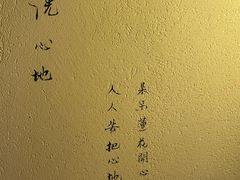 洗心地
人人若把心地
朵朵蓮花開心